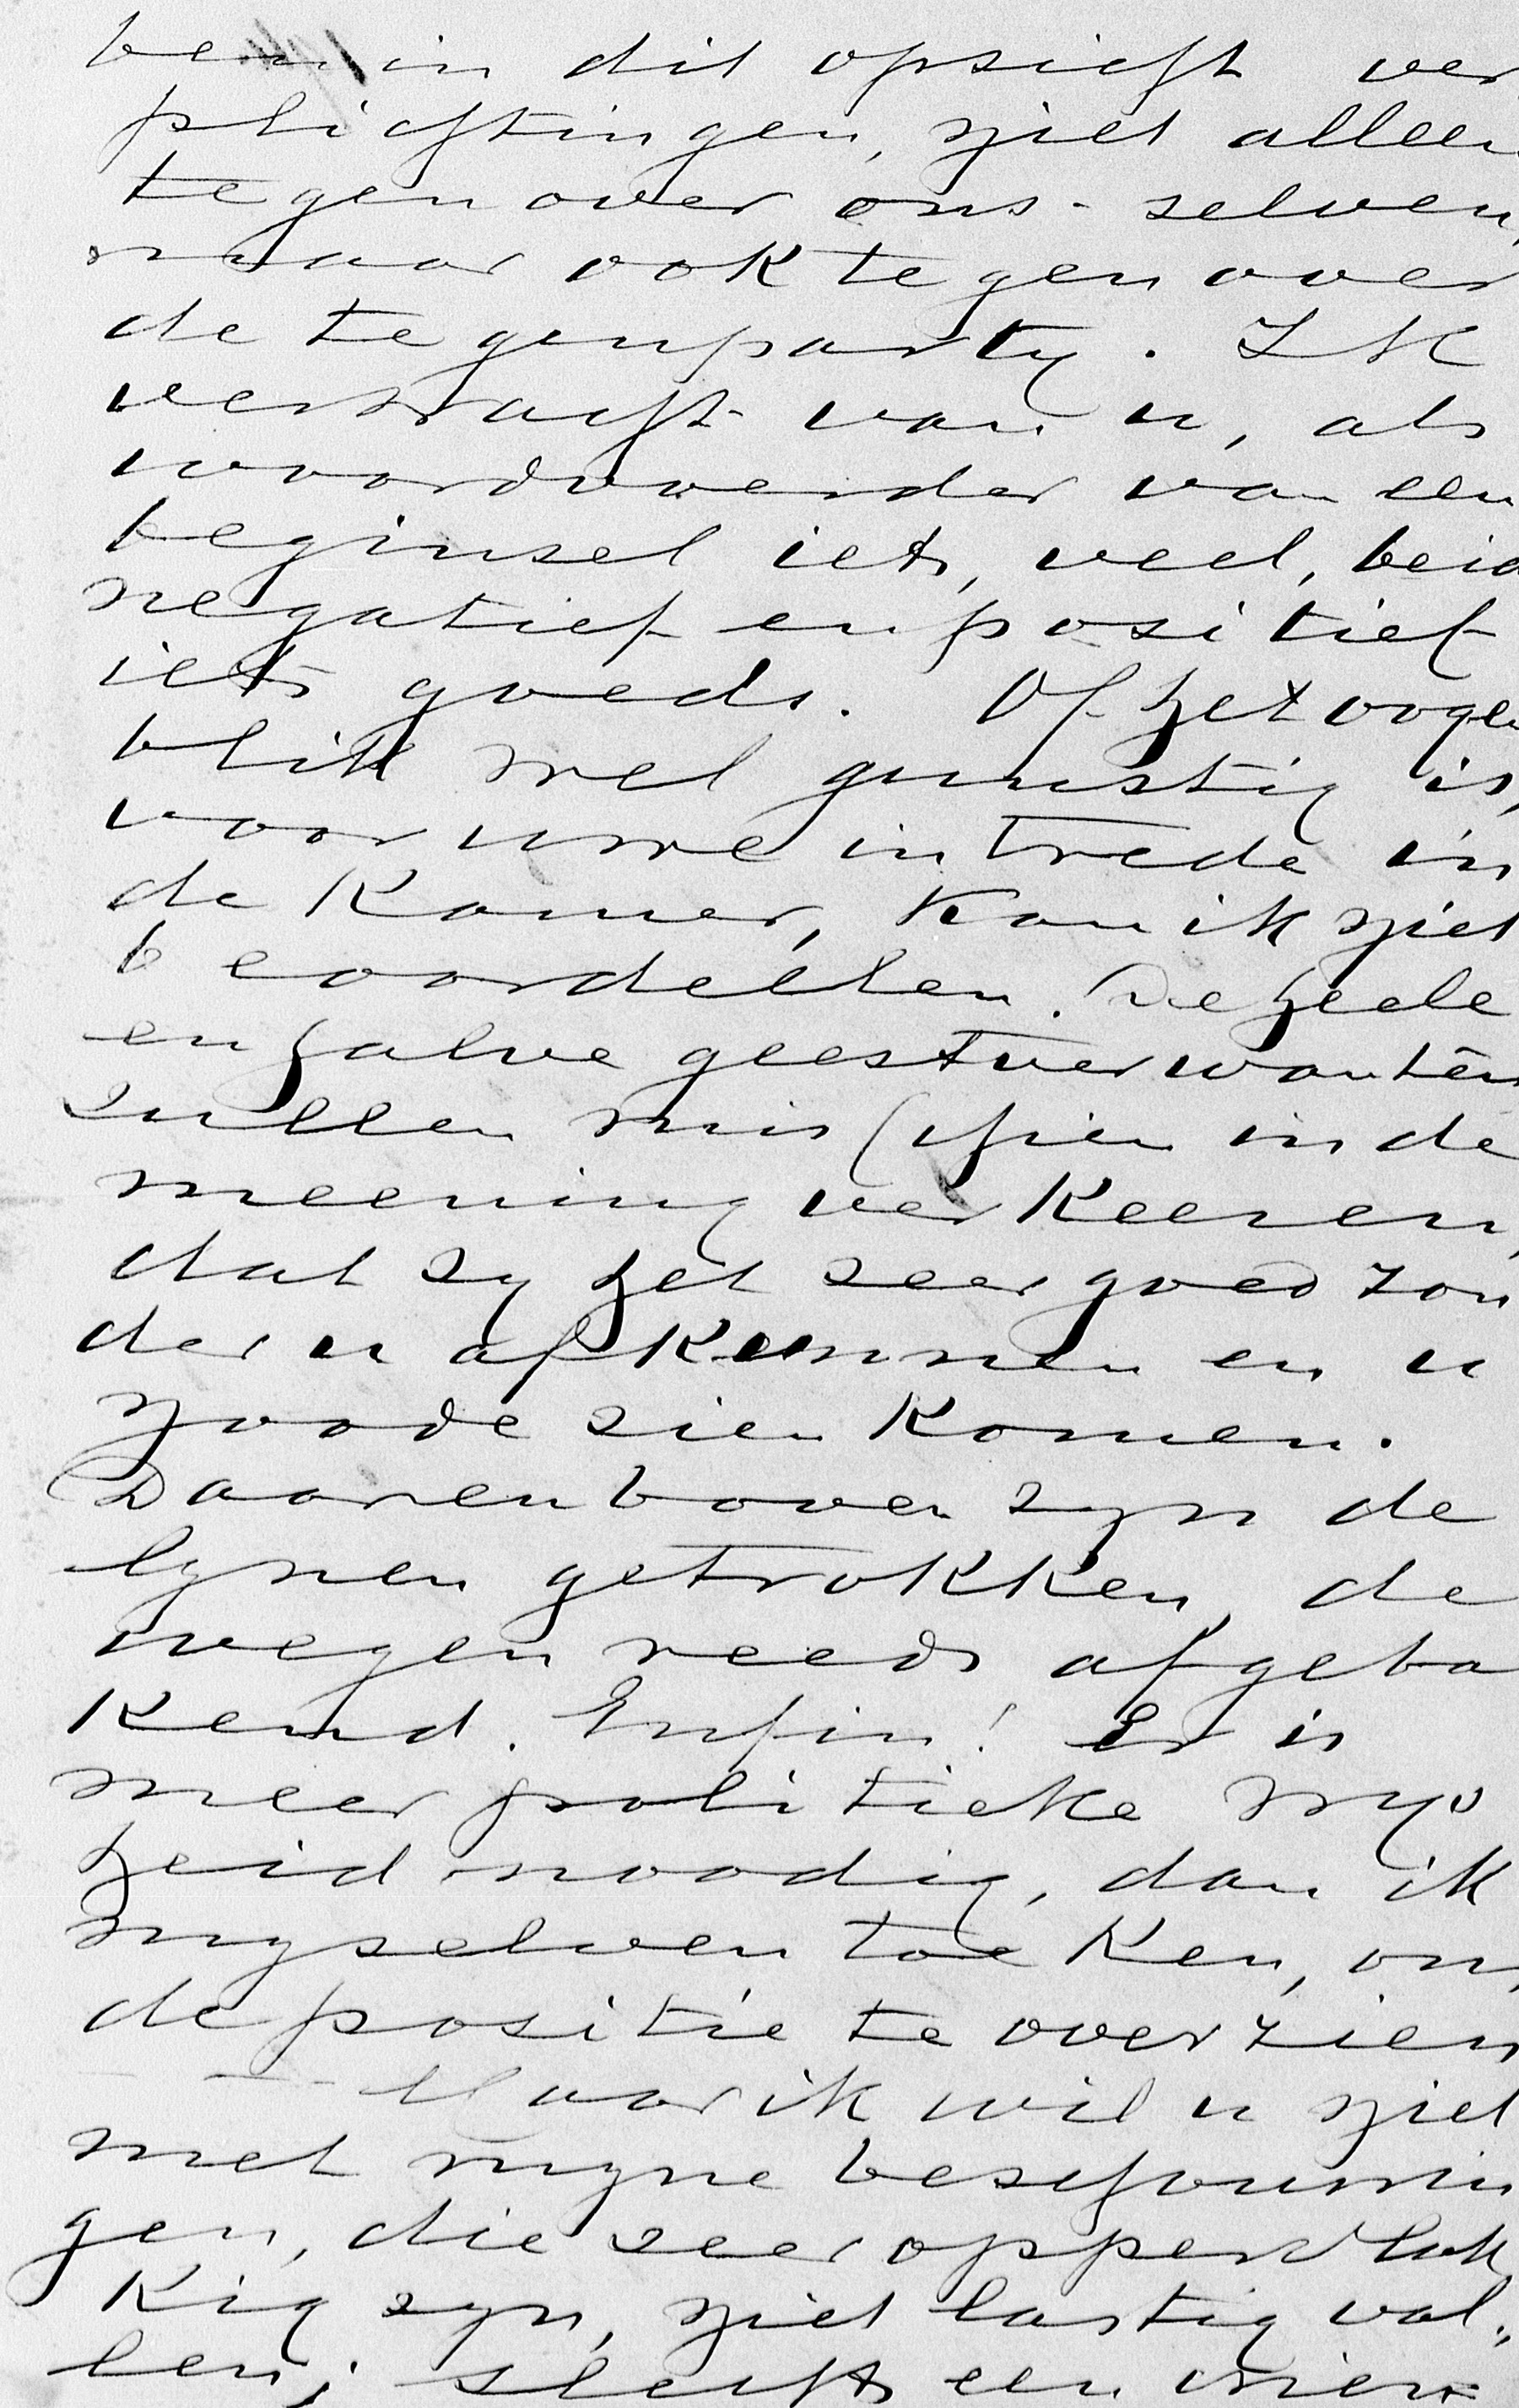 ben in dit opzicht ver
plichtingen, niet alleen
tegenover ons-selven,
maar ook tegenover
de tegenparty. Ik
verwacht van u, als
woordvoerder van een
beginsel iets, veel, beid
negatief en positief
iets goeds. Of het oogen
blik wel gunstig is,
voor uwe intrede in
de Kamer, kan ik niet
beoordeelen. De heele
en halve geestverwanten
zullen misschien in de
meening verkeeren,
dat zy het zeer goed zon
der u af kunnen en u
noode zien komen.
Daarenboven zyn de
lynen getrokken, de
wegen reeds afgeba
kend. Enfin! Er is
meer politieke wys
heid noodig, dan ik
myselven toeken, om
de positie te overzien
Maar ik wil u niet
met myne beschouwin
gen, die zeer oppervlak
kig zyn, niet lastig val„
len; slechts een